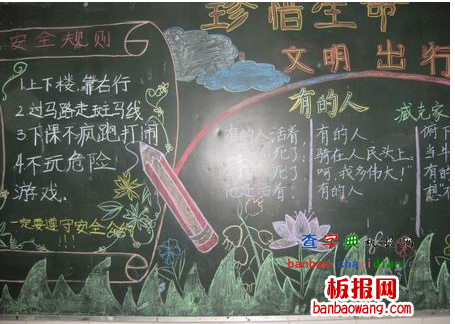 珍惜生命
文明出行
安全规则
1.上下楼.靠右行
2.过马路走斑马线
3.下课不疯跑打闹
4.不玩危险
游戏.
一定要遵守安全
有的人
臧克家
有的人活着,
有的人
骑在人民头上:
呵,我多伟大!"
有的人
俯下
当牛
有的
想"不
他还活着.
查字典
板报网
www.banbaowang.com